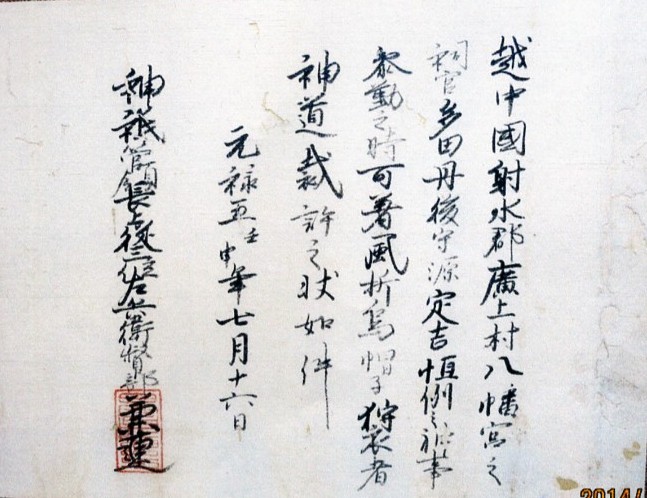 越中國射水郡廣上村八幡宮之
祠官多田丹後守源定吉恒例之神事
参勤之時可着風折烏帽子狩衣者
神道裁許之状如件
元禄五壬申年七月十六日
神祇管領長上従二位左兵衛督卜部兼連
2014/